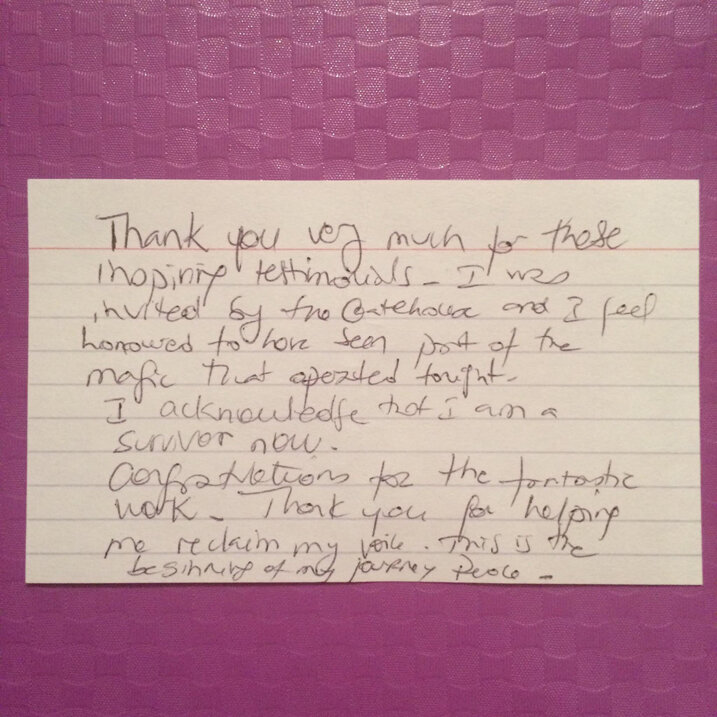 Thank you very much for those
inspiring testimonials - I was
invited by the Gatehouse and I feel
honoured to have been part of the
magic that operated tonight -
I acknowledge that I am a
survivor now.
Congratulations for the fantastic
work - Thank you for helping
me reclaim my voice. This is the
beginning of my journey Peace -